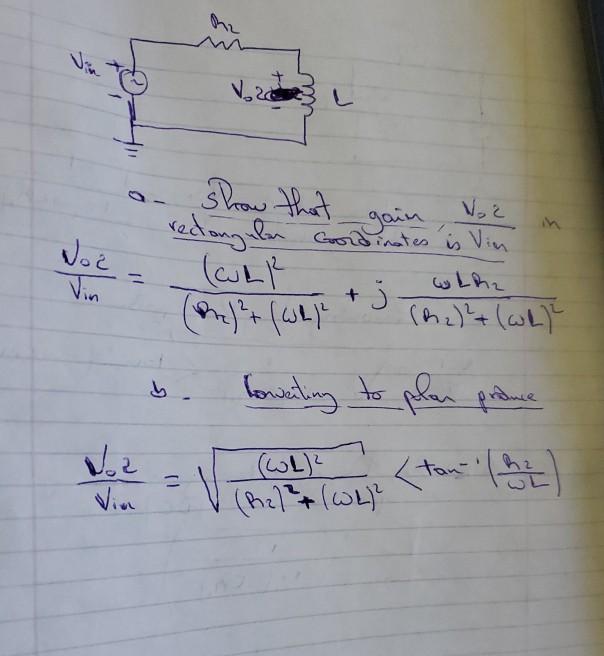 R2
Vin + -
+ Vo2 - L
a- show that gain Vo2/Vin in
rectangular coordinates is
Vo2/Vin = (ωL)²/((R2)²+(ωL)²) + j ωLR2/((R2)²+(ωL)²)
b- Converting to polar produce
Vo2/Vin = √((ωL)²/((R2)²+(ωL)²)) < tan⁻¹(R2/ωL)